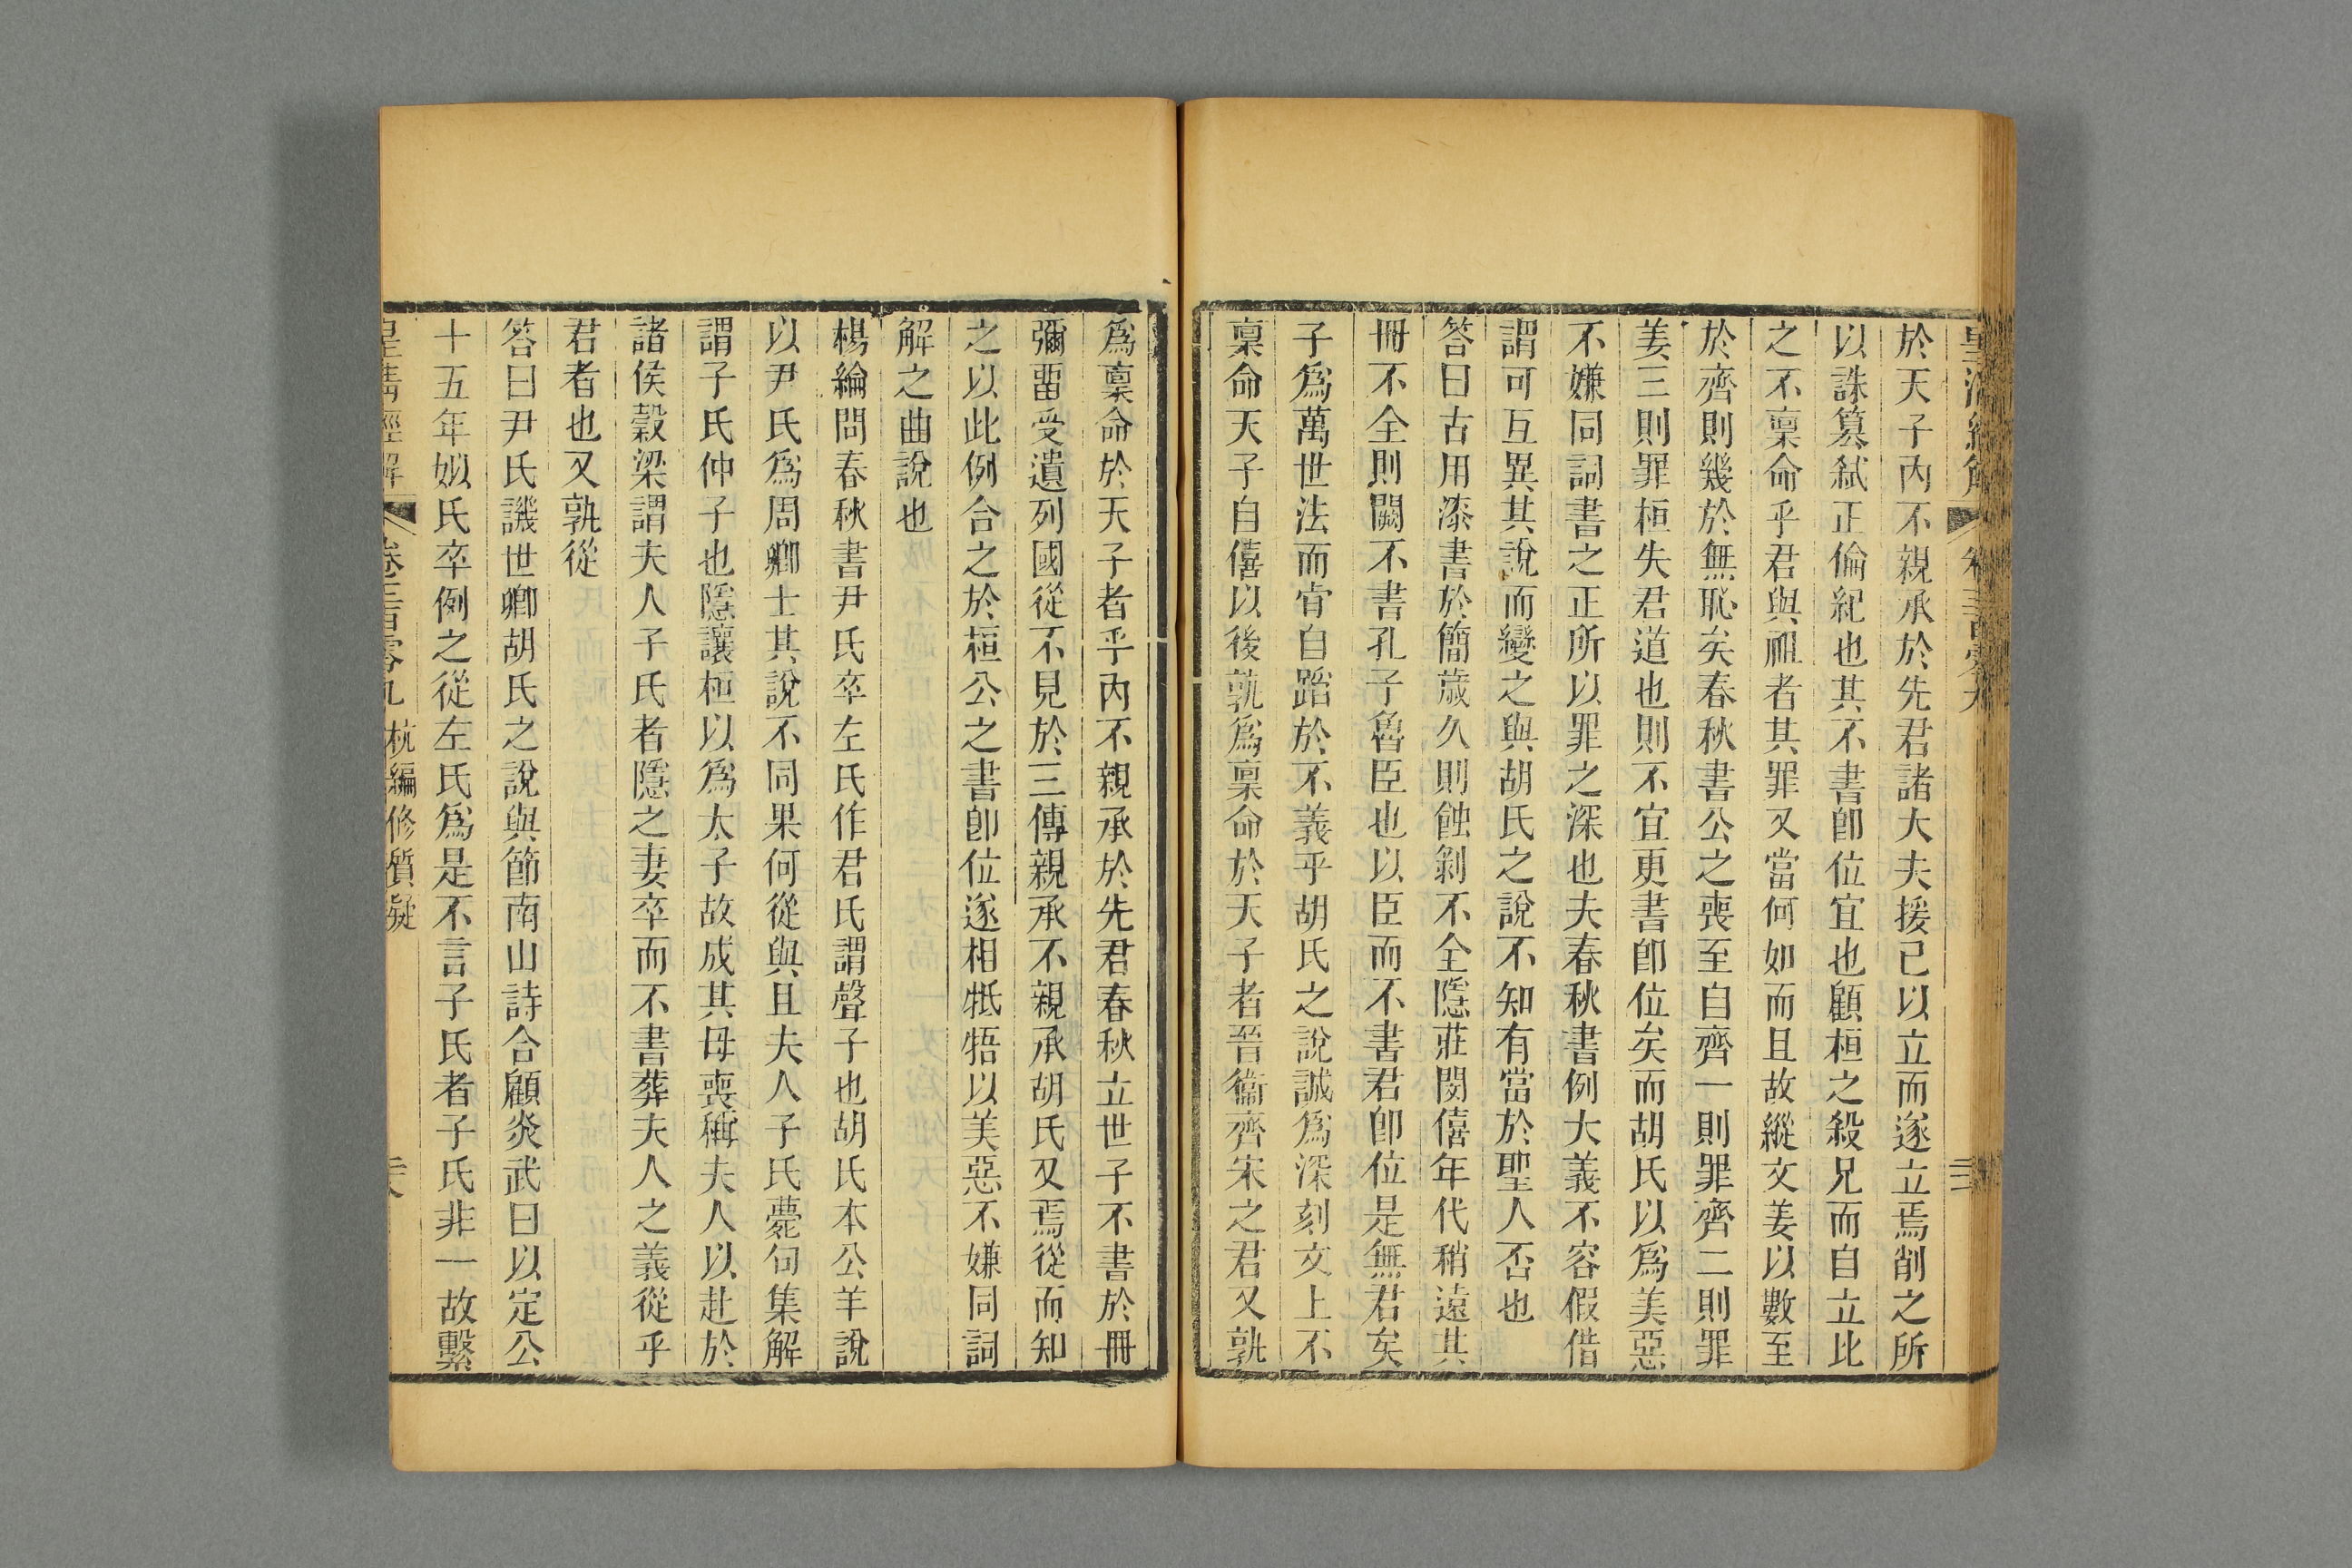 皇清經解 卷三百零九
於天子內不親承於先君諸大夫援已以立而遂立焉削之所
以誅簒弑正倫紀也其不書卽位宜也顧桓之殺兄而自立比
之不稟命乎君與祖者其罪又當何如而且故縱文姜以數至
於齊則幾於無恥矣春秋書公之喪至自齊一則罪齊二則罪
姜三則罪桓失君道也則不宜更書卽位矣而胡氏以爲美惡
不嫌同詞書之正所以罪之深也夫春秋書例大義不容假借
謂可互異其說而變之與胡氏之說不知有當於聖人否也
答曰古用漆書於簡歲久則蝕剝不全隱莊閔僖年代稍遠其
冊不全則闕不書孔子魯臣也以臣而不書君卽位是無君矣
子爲萬世法而肯自蹈於不義乎胡氏之說誠爲深刻文上不
稟命天子自僖以後孰爲稟命於天子者晉衞齊宋之君又孰
爲稟命於天子者乎內不親承於先君春秋立世子不書於冊
彌畱受遺列國從不見於三傳親承不親承胡氏又焉從而知
之以此例合之於桓公之書卽位遂相牴牾以美惡不嫌同詞
解之曲說也
楊綸問春秋書尹氏卒左氏作君氏謂聲子也胡氏本公羊說
以尹氏爲周卿士其說不同果何從與且夫人子氏薨句集解
謂子氏仲子也隱讓桓以爲太子故成其母喪稱夫人以赴於
諸侯穀梁謂夫人子氏者隱之妻卒而不書葬夫人之義從乎
君者也又孰從
答曰尹氏譏世卿胡氏之說與節南山詩合顧炎武曰以定公
十五年姒氏卒例之從左氏爲是不言子氏者子氏非一故繫
皇清經解 卷三百零九 杭編修質疑